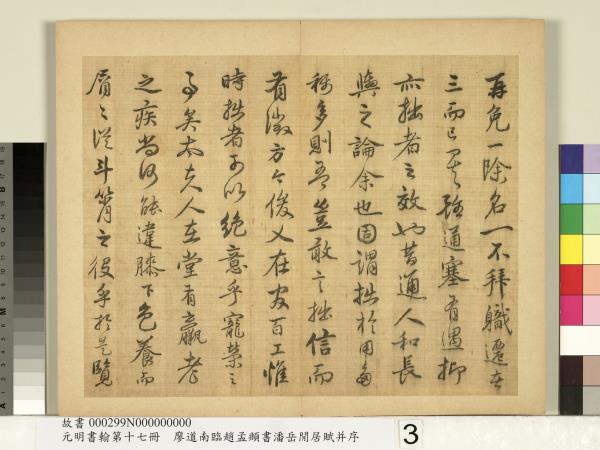 再免一除名一不拜職遷者
三而已矣雖通塞有遇抑
亦拙者之效也昔通人和長
輿之論余也固謂拙於用多
稱多則吾豈敢言拙信而
有徵方今俊乂在官百工惟
時拙者可以絕意乎寵榮之
事矣太夫人在堂有羸老
之疾尚何能違膝下色養而
屑々從斗筲之役乎於是覽
故書 000299N000000000
元明書翰第十七冊 廖道南臨趙孟頫書潘岳閒居賦并序
3